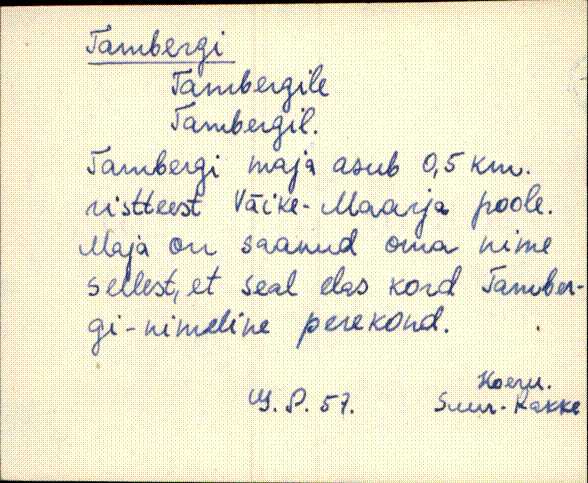 Tambergi
Tambergile
Tambergil.
Tambergi maja asub 0,5 km.
ristteest Väike-Maarja poole.
Maja on saanud oma nime
sellest, et seal elas kord Tamber-
gi-nimeline perekond.
Koeru.
P. 57. Suur-Rakke